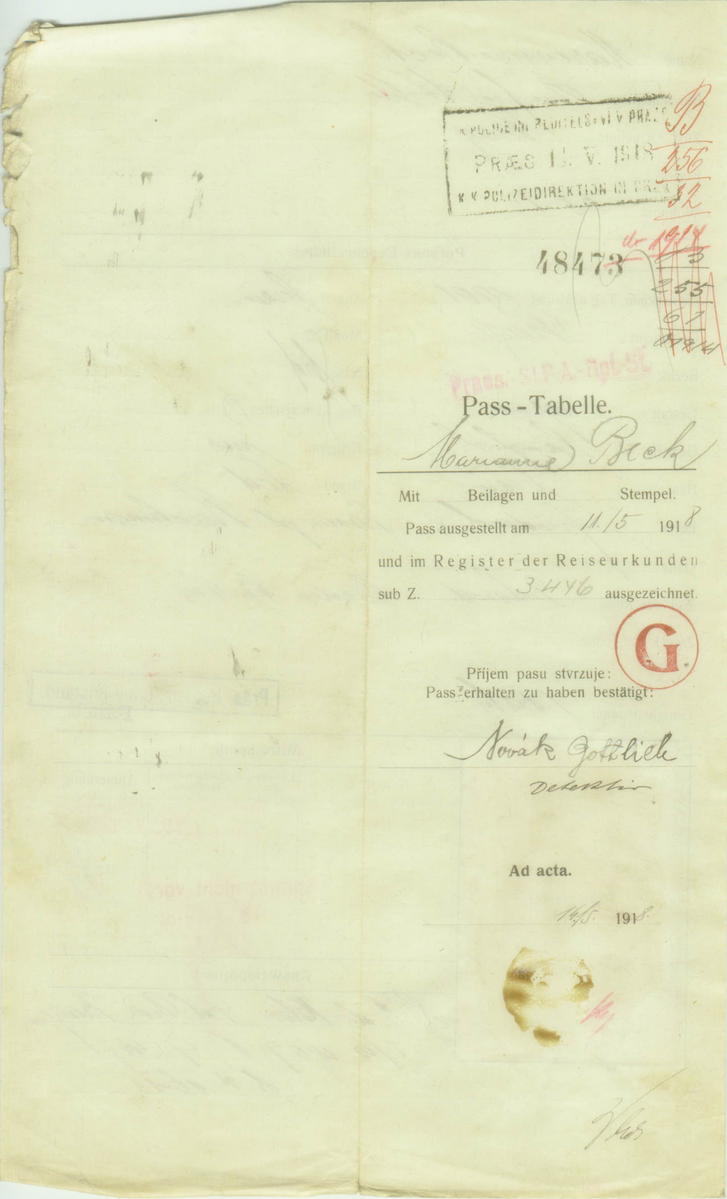 K.K. POLICEJNÍ ŘEDITELSTVÍ V PRAZE
PRÆS 1 . V. 1918
K. K. POLIZEIDIREKTION IN PRAG
B
256
32
1918
48473
13
255
61
Praes.
Pass-Tabelle.
Marianne Beck
Mit Beilagen und Stempel.
Pass ausgestellt am 11./5 1918
und im Register der Reiseurkunden
sub Z. 3.446 ausgezeichnet.
G.
Příjem pasu stvrzuje:
Pass erhalten zu haben bestätigt:
Novák Gottlieb
Detektiv
Ad acta.
14/5. 1918.